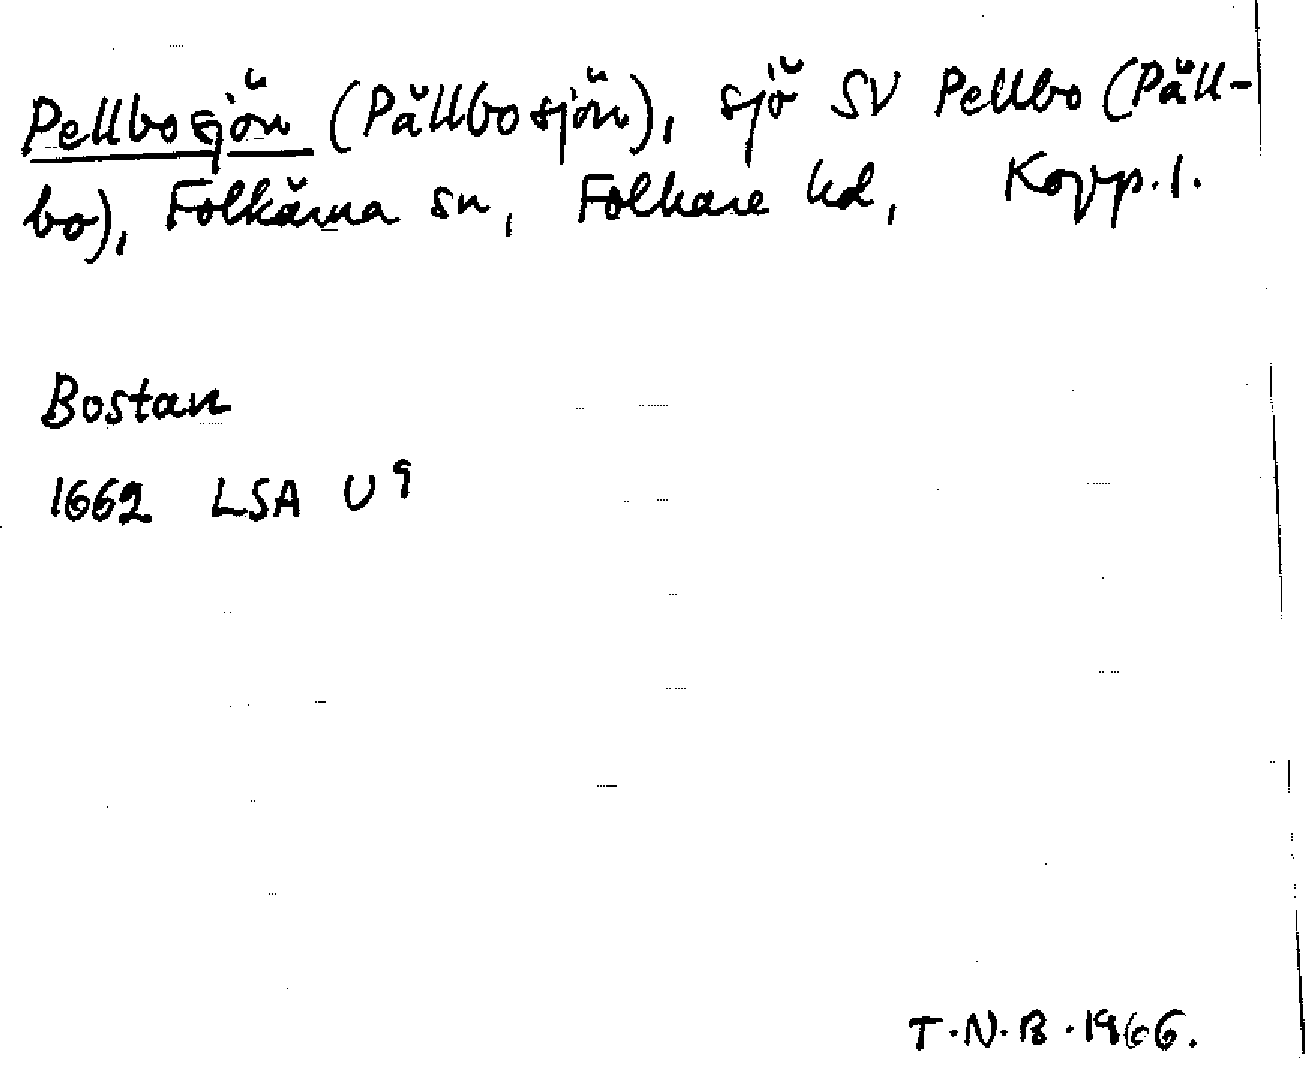 Pellbosjön (Pällbosjön), sjö SV Pellbo (Päll-
bo), Folkärna sn, Folkare hd, Kopp. l.
Bostan
1662 LSA U 9
T.N.B. 1966.